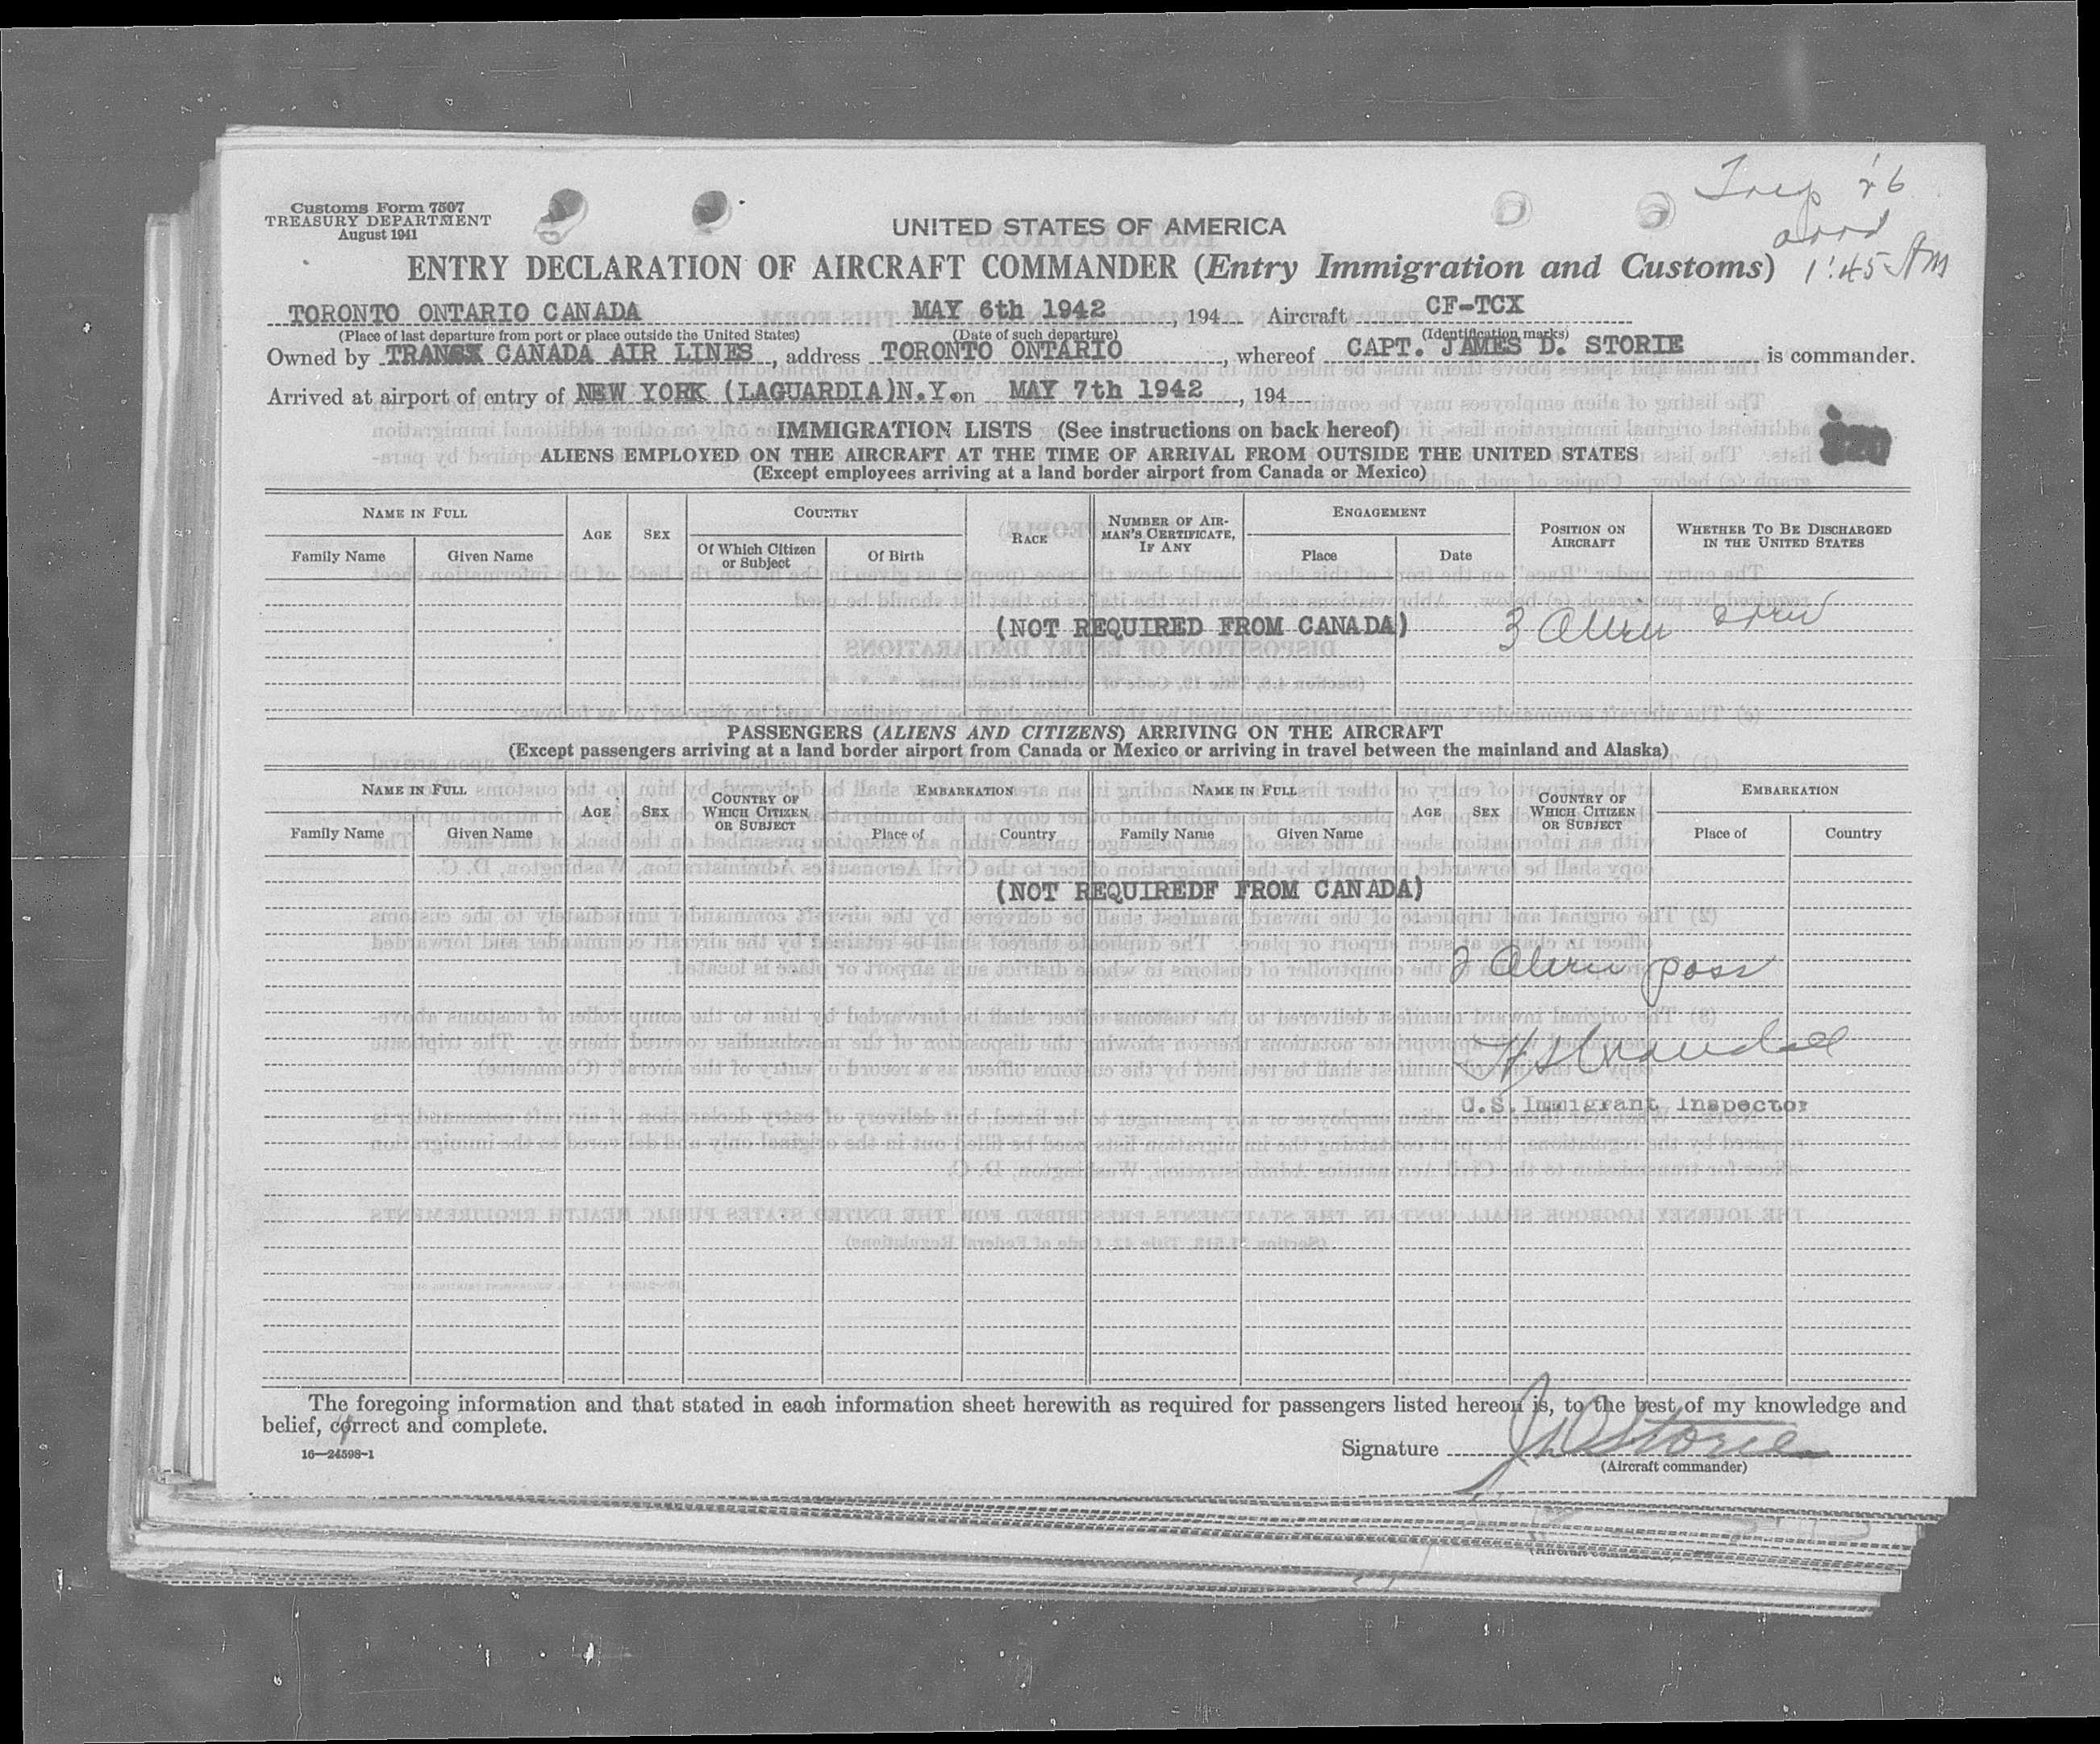 Customs Form 7507
TREASURY DEPARTMENT
August 1941
Trip 26
arrd
1:45 AM
UNITED STATES OF AMERICA
ENTRY DECLARATION OF AIRCRAFT COMMANDER (Entry Immigration and Customs)
TORONTO ONTARIO CANADA MAY 6th 1942, 194 Aircraft CF-TCX
(Place of last departure from port or place outside the United States) (Date of such departure) (Identification marks)
Owned by TRANS CANADA AIR LINES, address TORONTO ONTARIO, whereof CAPT. JAMES D. STORIE is commander.
Arrived at airport of entry of NEW YORK (LAGUARDIA)N.Y. on MAY 7th 1942, 194
IMMIGRATION LISTS (See instructions on back hereof)
ALIENS EMPLOYED ON THE AIRCRAFT AT THE TIME OF ARRIVAL FROM OUTSIDE THE UNITED STATES
(Except employees arriving at a land border airport from Canada or Mexico)
NAME IN FULL AGE SEX COUNTRY RACE NUMBER OF AIRMAN'S CERTIFICATE, IF ANY ENGAGEMENT POSITION ON AIRCRAFT WHETHER TO BE DISCHARGED IN THE UNITED STATES
Family Name Given Name Of Which Citizen or Subject Of Birth Place Date
(NOT REQUIRED FROM CANADA) 3 Alien crew
PASSENGERS (ALIENS AND CITIZENS) ARRIVING ON THE AIRCRAFT
(Except passengers arriving at a land border airport from Canada or Mexico or arriving in travel between the mainland and Alaska)
NAME IN FULL AGE SEX COUNTRY OF WHICH CITIZEN OR SUBJECT EMBARKATION NAME IN FULL AGE SEX COUNTRY OF WHICH CITIZEN OR SUBJECT EMBARKATION
Family Name Given Name Place of Country Family Name Given Name Place of Country
(NOT REQUIREDF FROM CANADA)
2 Alien pass
U.S. Immigrant Inspector
The foregoing information and that stated in each information sheet herewith as required for passengers listed hereon is, to the best of my knowledge and
belief, correct and complete.
16—24598-1
Signature J D Storie
(Aircraft commander)